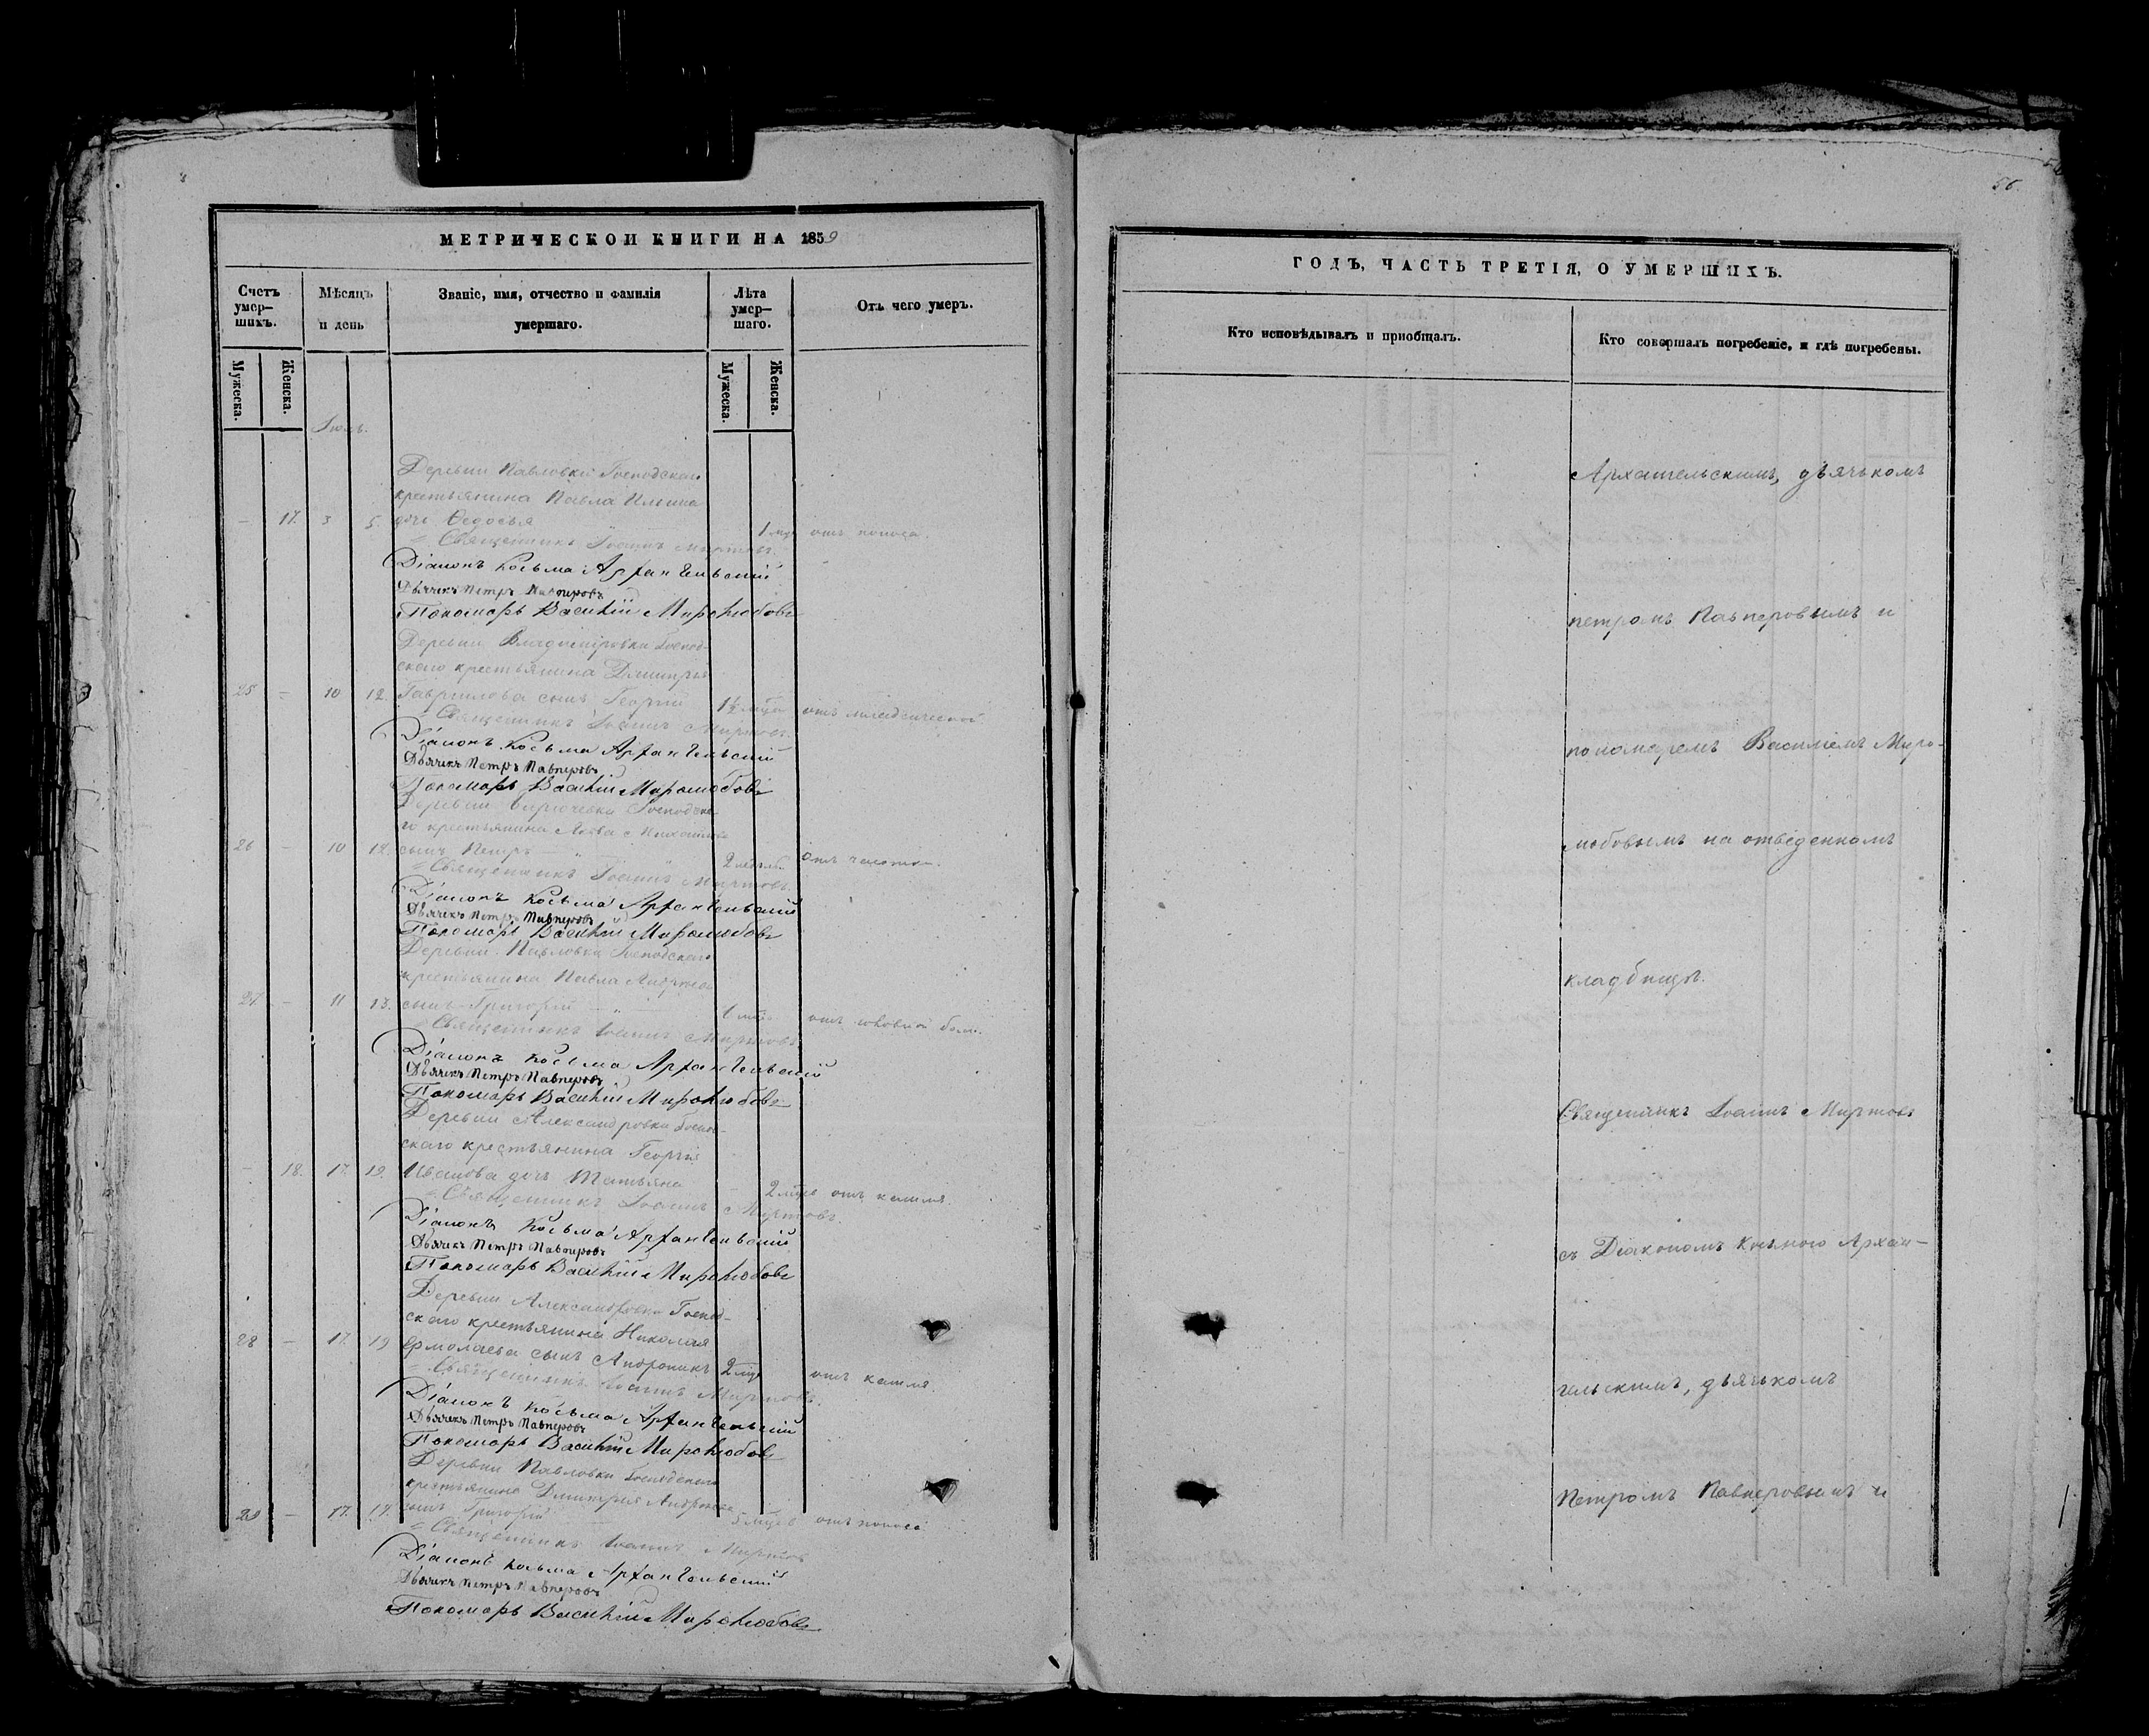 56.
МЕТРИЧЕСКОЙ КНИГИ НА 1859
Счетъ умер-шихъ.
Мѣсяцъ и день
Званіе, имя, отчество и фамилія умершаго.
Лѣта умер-шаго.
Отъ чего умеръ.
Мужеска.
Женска.
Мужеска.
Женска.
Іюль.
Деревни Павловки Господскаго
крестьянина Павла Ильина
– 17. 3 5. дочь Ѳедосья 1 мца отъ поноса.
Священникъ Іоаннъ Миртовъ.
Діаконъ Косьма Архангельскій
Дьячекъ Петръ Павперовъ
Пономарь Василій Миролюбовъ
Деревни Владиміровки Господ-
скаго крестьянина Димитрія
25 – 10 12. Гаврилова сынъ Георгій 1½ мца отъ младенческой
Священникъ Іоаннъ Миртовъ.
Діаконъ Косьма Архангельскій
Дьячекъ Петръ Павперовъ
Пономарь Василій Миролюбовъ
Деревни Господска-
го крестьянина
26 – 10 12. сынъ Петръ отъ
Священникъ Іоаннъ Миртовъ.
Діаконъ Косьма Архангельскій
Дьячекъ Петръ Павперовъ
Пономарь Василій Миролюбовъ
Деревни Павловки Господскаго
крестьянина Павла Андреева
27 – 11 13. сынъ Григорій отъ головной боли.
Священникъ Іоаннъ Миртовъ
Діаконъ Косьма Архангельскій
Дьячекъ Петръ Павперовъ
Пономарь Василій Миролюбовъ
Деревни Александровки Господ-
скаго крестьянина Георгія
– 18. 17. 19. Иванова дочь Татьяна 2 мцов отъ кашля.
Священникъ Іоаннъ Миртовъ.
Діаконъ Косьма Архангельскій
Дьячекъ Петръ Павперовъ
Пономарь Василій Миролюбовъ
Деревни Александровки Господ-
скаго крестьянина Николая
28 – 17. 19 Ермолаева сынъ Андроникъ 2 мца отъ кашля.
Священникъ Іоаннъ Миртовъ.
Діаконъ Косьма Архангельскій
Дьячекъ Петръ Павперовъ
Пономарь Василій Миролюбовъ
Деревни Павловки Господскаго
крестьянина Димитрія Андреева
29 – 17. 19. сынъ Григорій 5 мцев отъ поноса
Священникъ Іоаннъ Миртовъ
Діаконъ Косьма Архангельскій
Дьячекъ Петръ Павперовъ
Пономарь Василій Миролюбовъ
ГОДЪ, ЧАСТЬ ТРЕТІЯ, О УМЕРШИХЪ.
Кто исповѣдывалъ и пріобщалъ.
Кто совершалъ погребеніе, и гдѣ погребены.
Архангельскимъ, дьячькомъ
Петромъ Павперовымъ и
пономаремъ Василіемъ Миро-
любовымъ на отведенномъ
кладбищѣ.
Священникъ Іоаннъ Миртовъ
съ Діакономъ Козьмою Архан-
гельскимъ, дьячькомъ
Петромъ Павперовымъ и